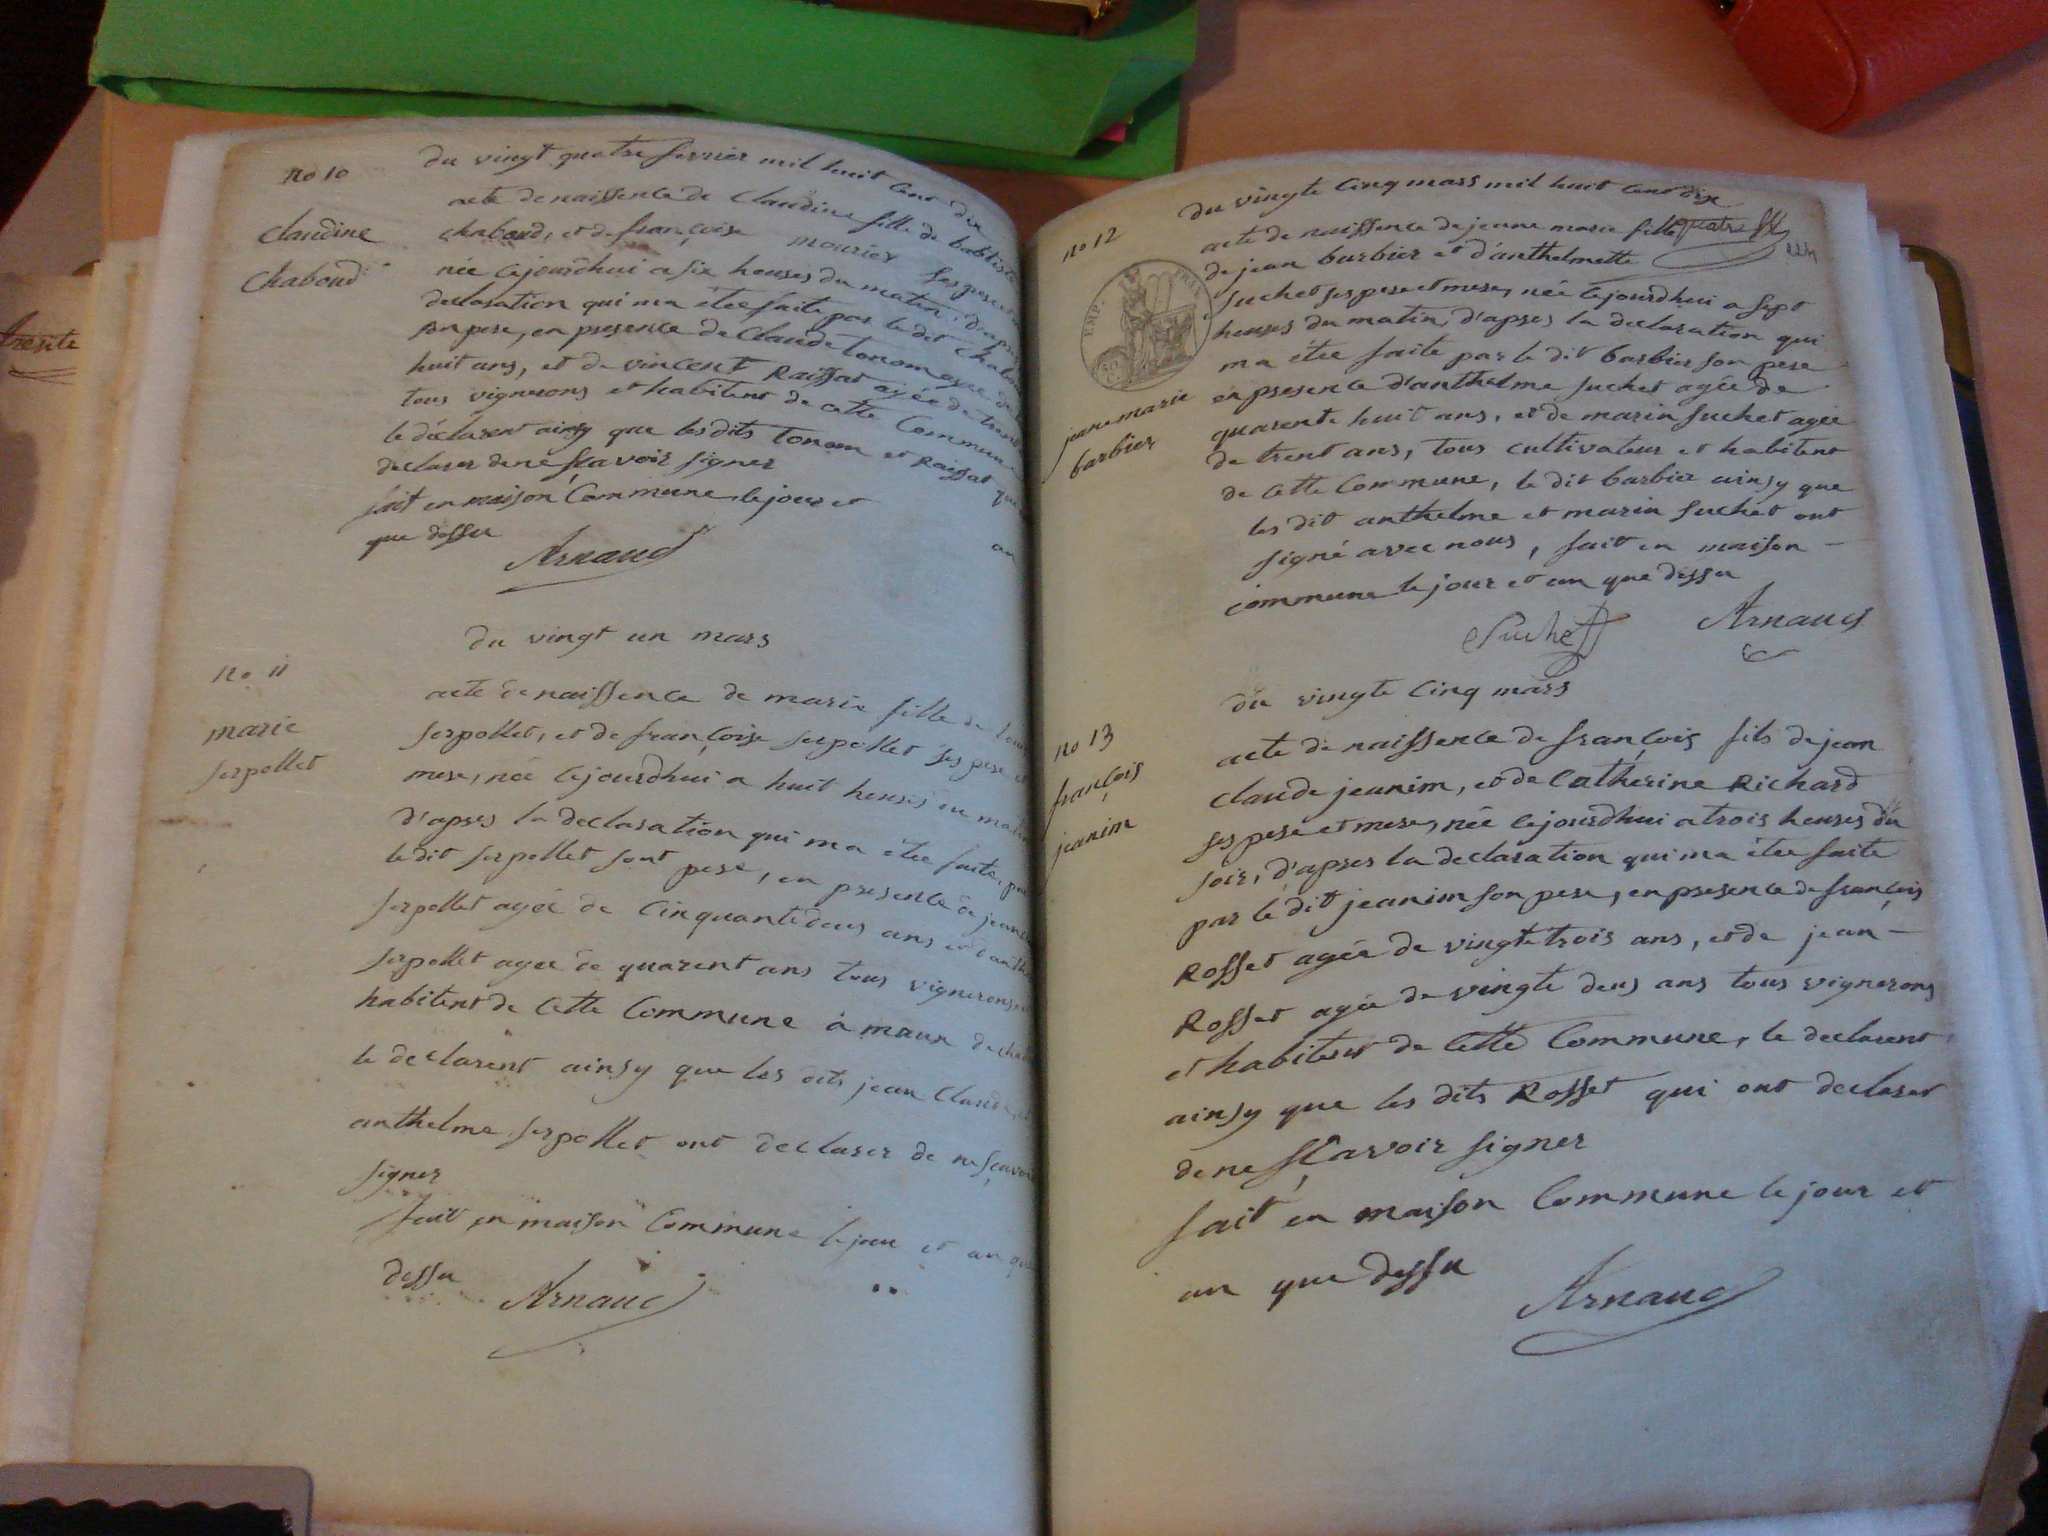 tresite
no 10
du vingt quatre fevrier mil huit cent dix
claudine
chaboud
acte de naissence de claudine fille de babtiste
chaboud, et de françoise mourier ses pere et
née cejourdhui a six heures du matin, d'apres
declaration qui ma étee faite par le dit chaboud
son pere, en presence de claude tonom agée de
huit ans, et de vincent Raissat agée de trente
tous vignerons et habitent de cette commune
le déclarent ainsy que les dits tonom et Raissat que
declarer de ne sçavoir signer
fait en maison Commune le jour et an
que dessu
Arnaud
du vingt un mars
no 11
marie
serpollet
acte de naissence de marie fille de louis
serpollet, et de françoise serpollet ses pere et
mere, née cejourdhui a huit heures du matin
d'apres la declaration qui ma étee faite, par
le dit serpollet sont pere, en presence de jean
serpollet agée de cinquante deus ans et d'anthe
serpollet agée de quarent ans tous vignerons et
habitent de cette Commune à maux de
le declarent ainsy que les dits jean claude, et
anthelme serpollet ont declarer de ne sçavoir
signer
fait en maison Commune le jour et an que
dessu
Arnaud
no 12
du vingte cinq mars mil huit cent dix
acte de naissence de jeanne marie fille quatre
de jean barbier et d'anthelmette
EMP. FRAN.
suchet ses pere et mere, née cejourdhui a sept
heures du matin, d'apres la declaration qui
ma étee faite par le dit barbier son pere
en presence d'anthelme suchet agée de
jeane marie
barbier
quarente huit ans, et de marin suchet agée
de trent ans, tous cultivateur et habitent
de cette Commune, le dit barbier ainsy que
les dit anthelme et marin suchet ont
signé avec nous, fait en maison
commune le jour et an que dessu
Suchet Arnaud
du vingte cinq mars
no 13
françois
jeanim
acte de naissence de françois fils de jean
claude jeanim, et de catherine Richard
ses pere et mere, née cejourdhui a trois heures du
soir, d'apres la declaration qui ma étee faite
par le dit jeanim son pere, en presence de françois
Rosset agée de vingte trois ans, et de jean
Rosset agée de vingte deus ans tous vignerons
et habitent de cette Commune, le declarent
ainsy que les dits Rosset qui ont declarer
de ne sçavoir signer
fait en maison Commune le jour et
an que dessu
Arnaud